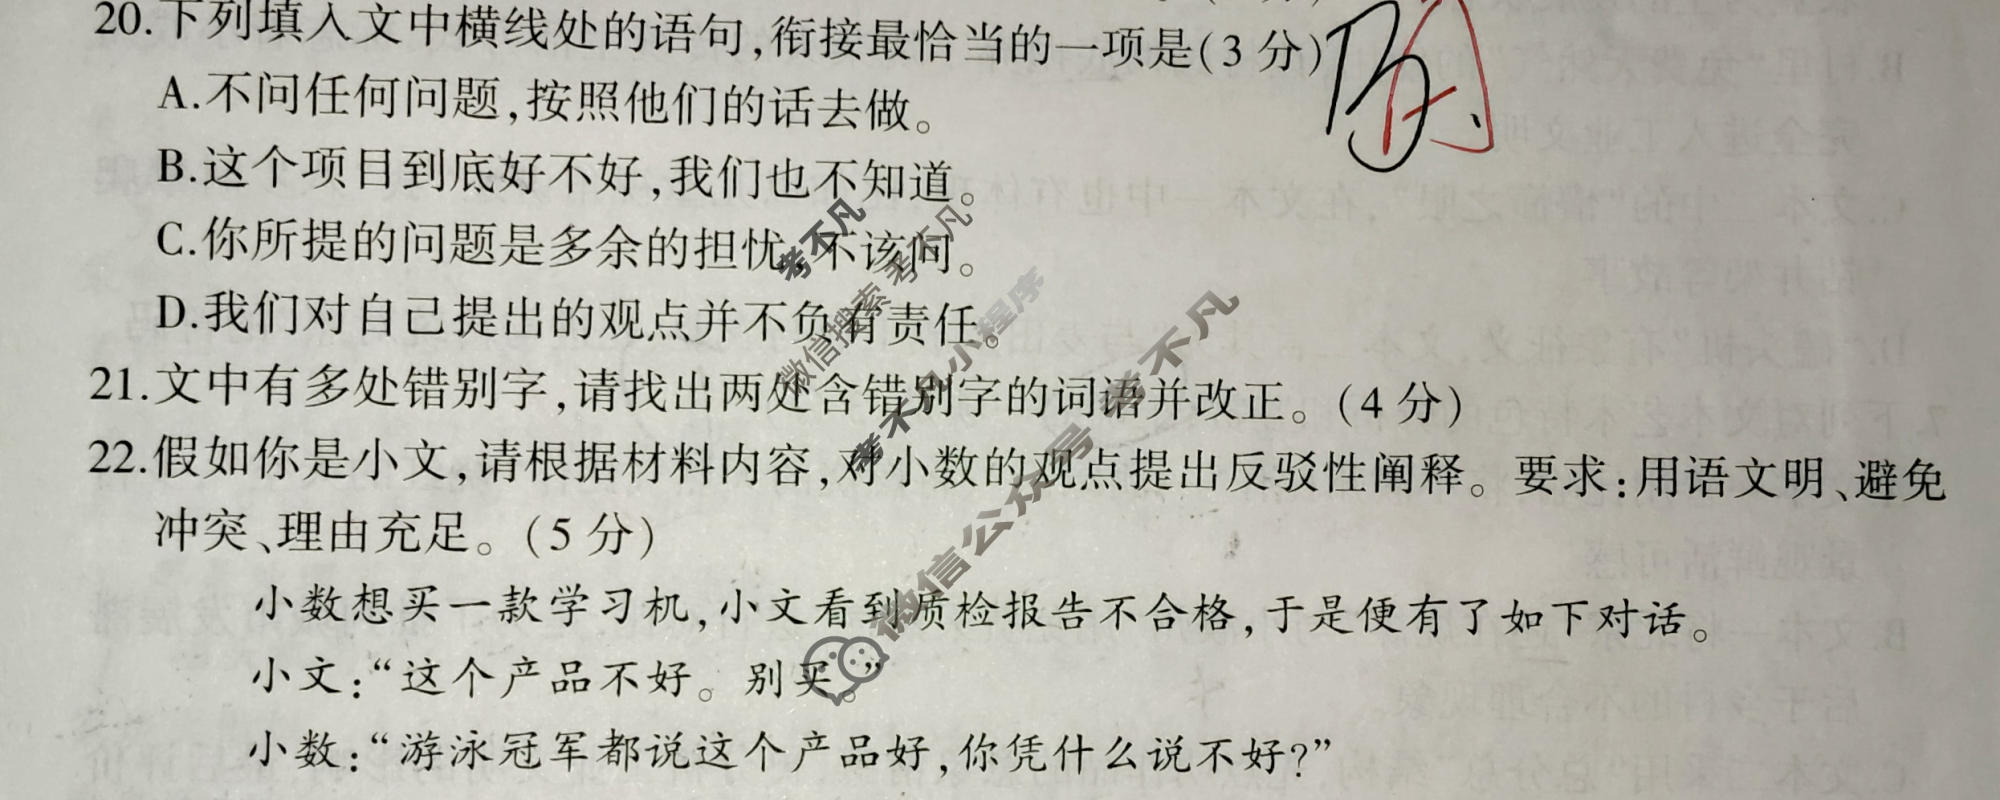 20.下列填入文中横线处的语句,衔接最恰当的一项是(3分)
A.不问任何问题,按照他们的话去做。
B.这个项目到底好不好,我们也不知道。
C.你所提的问题是多余的担忧,不该问。
D.我们对自己提出的观点并不负有责任。
21.文中有多处错别字,请找出两处含错别字的词语并改正。(4分)
22.假如你是小文,请根据材料内容,对小数的观点提出反驳性阐释。要求:用语文明、避免
冲突、理由充足。(5分)
小数想买一款学习机,小文看到质检报告不合格,于是便有了如下对话。
小文:“这个产品不好。别买。”
小数:“游泳冠军都说这个产品好,你凭什么说不好?”
考不凡
微信搜索 考不凡
考不凡小程序
微信公众号 考不凡